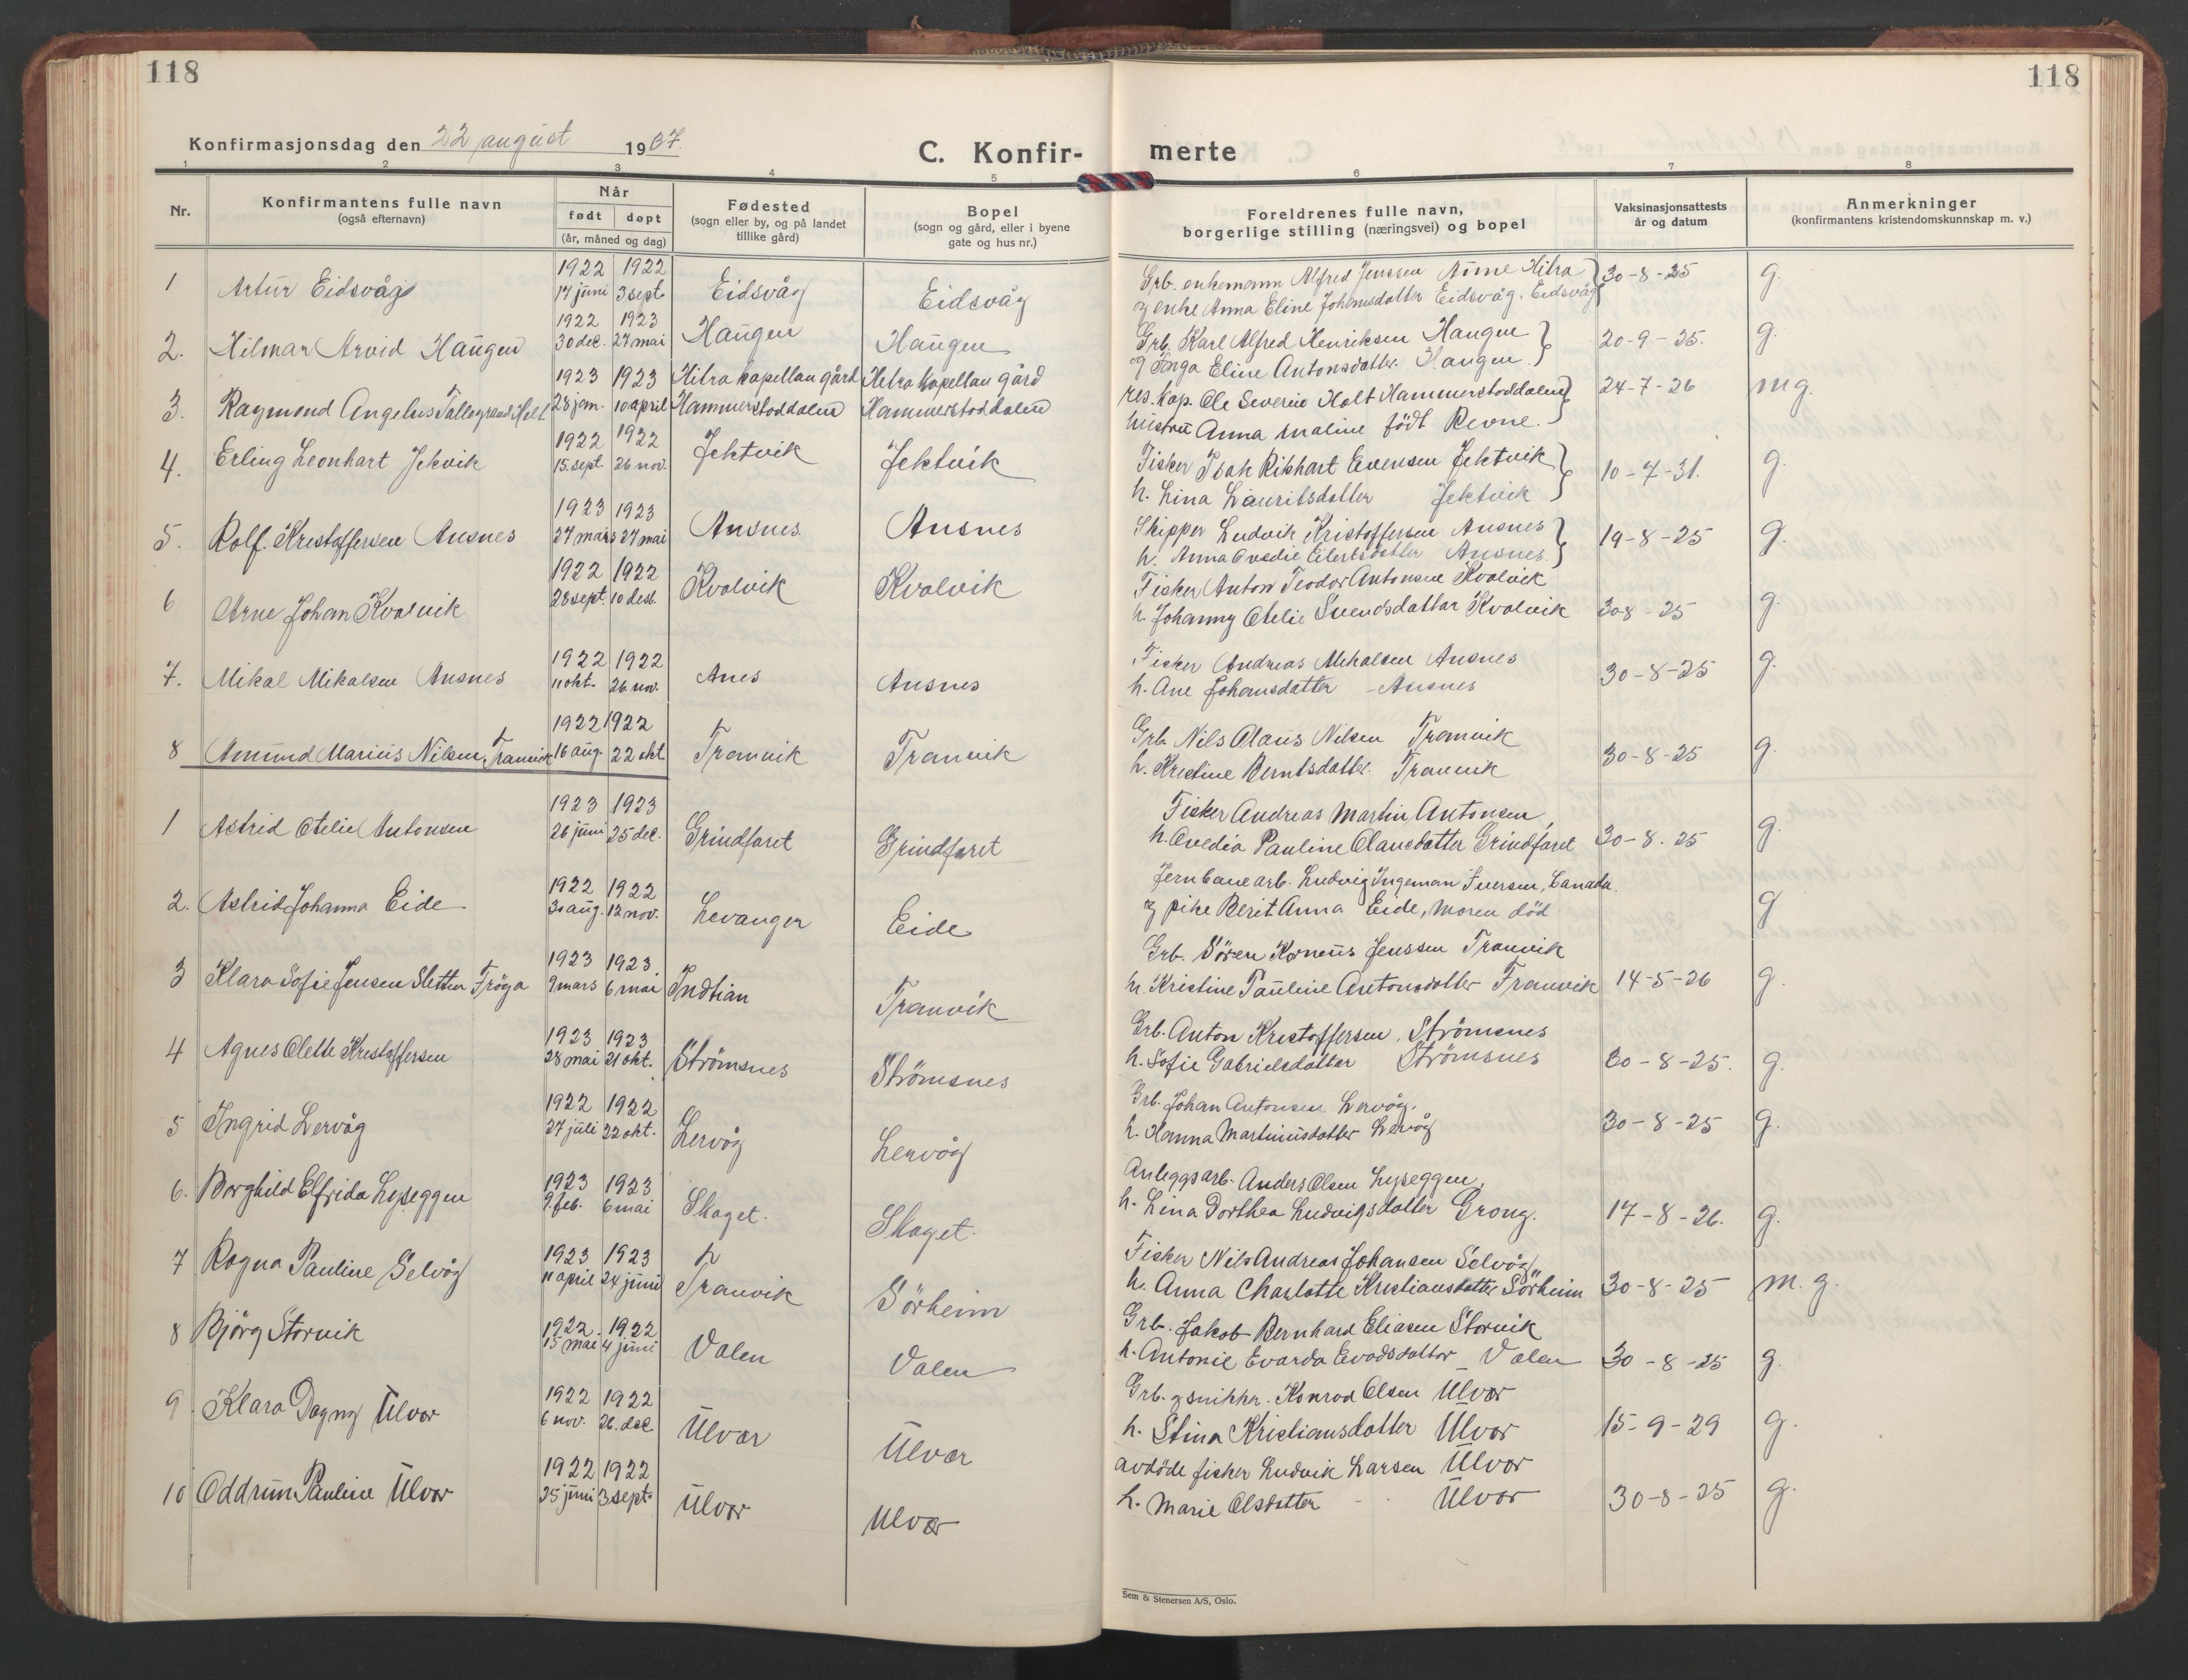 118
118
Konfirmasjonsdag den 22 august 1937.
C. Konfir- merte
1 2 3 4 5 6 7 8
Nr.
Konfirmantens fulle navn
(også efternavn)
Når
født døpt
(år, måned og dag)
Fødested
(sogn eller by, og på landet
tillike gård)
Bopel
(sogn og gård, eller i byene
gate og hus nr.)
Foreldrenes fulle navn,
borgerlige stilling (næringsvei) og bopel
Vaksinasjonsattests
år og datum
Anmerkninger
(konfirmantens kristendomskunnskap m. v.)
1 Artur Eidsvåg 1922 14 juni 1922 3 sept. Eidsvåg Eidsvåg
Grb. enkemann Alfred Jenssen Aune Hitra 30-8-25 g.
og enke Anna Eline Johansdatter Eidsvåg. Eidsvåg
2. Hilmar Arvid Haugen 1922 30 dec. 1923 27 mai Haugen Haugen
Grb. Karl Alfred Henriksen Haugen 20-9-25. g.
og Inga Eline Antonsdatter. Haugen.
3. Raymond Angelus Holt 1923 28 jan. 1923 10 april Hitra kapellan gård Hammerstoddalen Hitra kapellan gård Hammerstoddalen
res. kap. Ole Severin Holt Hammerstoddalen 24-7-26 mg.
hustru Anna Maline født Revne.
4. Erling Leonhart Jekvik 1922 15. sept. 1922 26 nov. Jektvik Jektvik
Fisker Isak Rikhart Evensen Jektvik 10-7-31. g.
h. Lina Lauritsdatter Jektvik
5. Rolf. Kristoffersen Ansnes 1923 27 mars 1923 27 mai Ansnes Ansnes
Skipper Ludvik Kristoffersen Ansnes 19-8-25 g.
h. Anna Ovedie Eilertsdatter Ansnes
6 Arne Johan Kvalvik 1922 28 sept. 1922 10 desb. Kvalvik Kvalvik
Fisker Anton Teodor Antonsen Kvalvik
h. Johanny Otelie Svendsdatter Kvalvik 30-8-25 g.
7. Mikal Mikalsen Ansnes 1922 11 okt. 1922 26 nov. Anes Ansnes
Fisker Andreas Mikalsen Ansnes
h. Ane Johansdatter - Ansnes 30-8-25 g.
8 Amund Marius Nilsen, Tranvik 1922 16 aug. 1922 22 okt. Tranvik Tranvik
Grb. Nils Olaus Nilsen Tranvik
h. Kristine Berntsdatter. Tranvik 30-8-25 g.
1 Astrid Otelie Antonsen 1923 26 juni 1923 25 dec. Grindfaret Grindfaret
Fisker Andreas Martin Antonsen,
h. Ovedia Pauline Olausdatter Grindfaret 30-8-25 g.
2. Astrid Johanna Eide 1922 30 aug. 1922 12 nov. Levanger Eide
Jernbanearb. Ludvig Ingeman Iversen, Canada.
og pike Berit Anna Eide, moren död g
3 Klara Sofie Jensen Sletten Fröya 1923 9 mars 1923 6 mai Indtian Tranvik
Grb. Sören Korneus Jenssen Tranvik
h. Kristine Pauline Antonsdatter Tranvik 14-5-26 g.
4 Agnes Olette Kristoffersen 1923 28 mai 1923 21 okt. Strömsnes Strömsnes
Grb. Anton Kristoffersen. Strömsnes
h. Sofie Gabrielsdatter Strömsnes 30-8-25. g.
5 Ingrid Lervåg 1922 27 juli 1922 22 okt. Lervåg Lervåg
Grb. Johan Antonsen Lervåg.
h. Hanna Martinusdatter Lervåg 30-8-25 g.
6. Borghild Elfrida Lyseggen 1923 9. feb. 1923 6 mai Skaget. Skaget.
Anleggsarb. Anders Olsen Lyseggen,
h. Lina Dorthea Ludvigsdatter Grong. 17-8-26. g.
7 Ragna Pauline Selvåg 1923 11 april 1923 24 juni Tranvik Sörheim
Fisker Nils Andreas Johansen Selvåg
h. Anna Charlotte Kristiansdatter Sörheim 30-8-25 m.g.
8 Bjørg Storvik 1922. 15 mai 1922 4 juni Valen Valen
Grb. Jakob Bernhard Eliasen Storvik
h. Antonie Evarda Evodsdatter - Valen 30-8-25 g.
9. Klara Dagny Ulvær 1922 6 nov. 1922 26. dec Ulvær Ulvær
Grb. og snikker. Konrad Olsen Ulvær
h. Stina Kristiansdatter Ulvær 15-9-29 g.
10 Oddrun Pauline Ulvær 1922 25 juni 1922 3 sept. Ulvær Ulvær
avdöde fisker Ludvik Larsen Ulvær
h. Marie Olsdatter - Ulvær 30-8-25 g.
Sem & Stenersen A/S, Oslo.